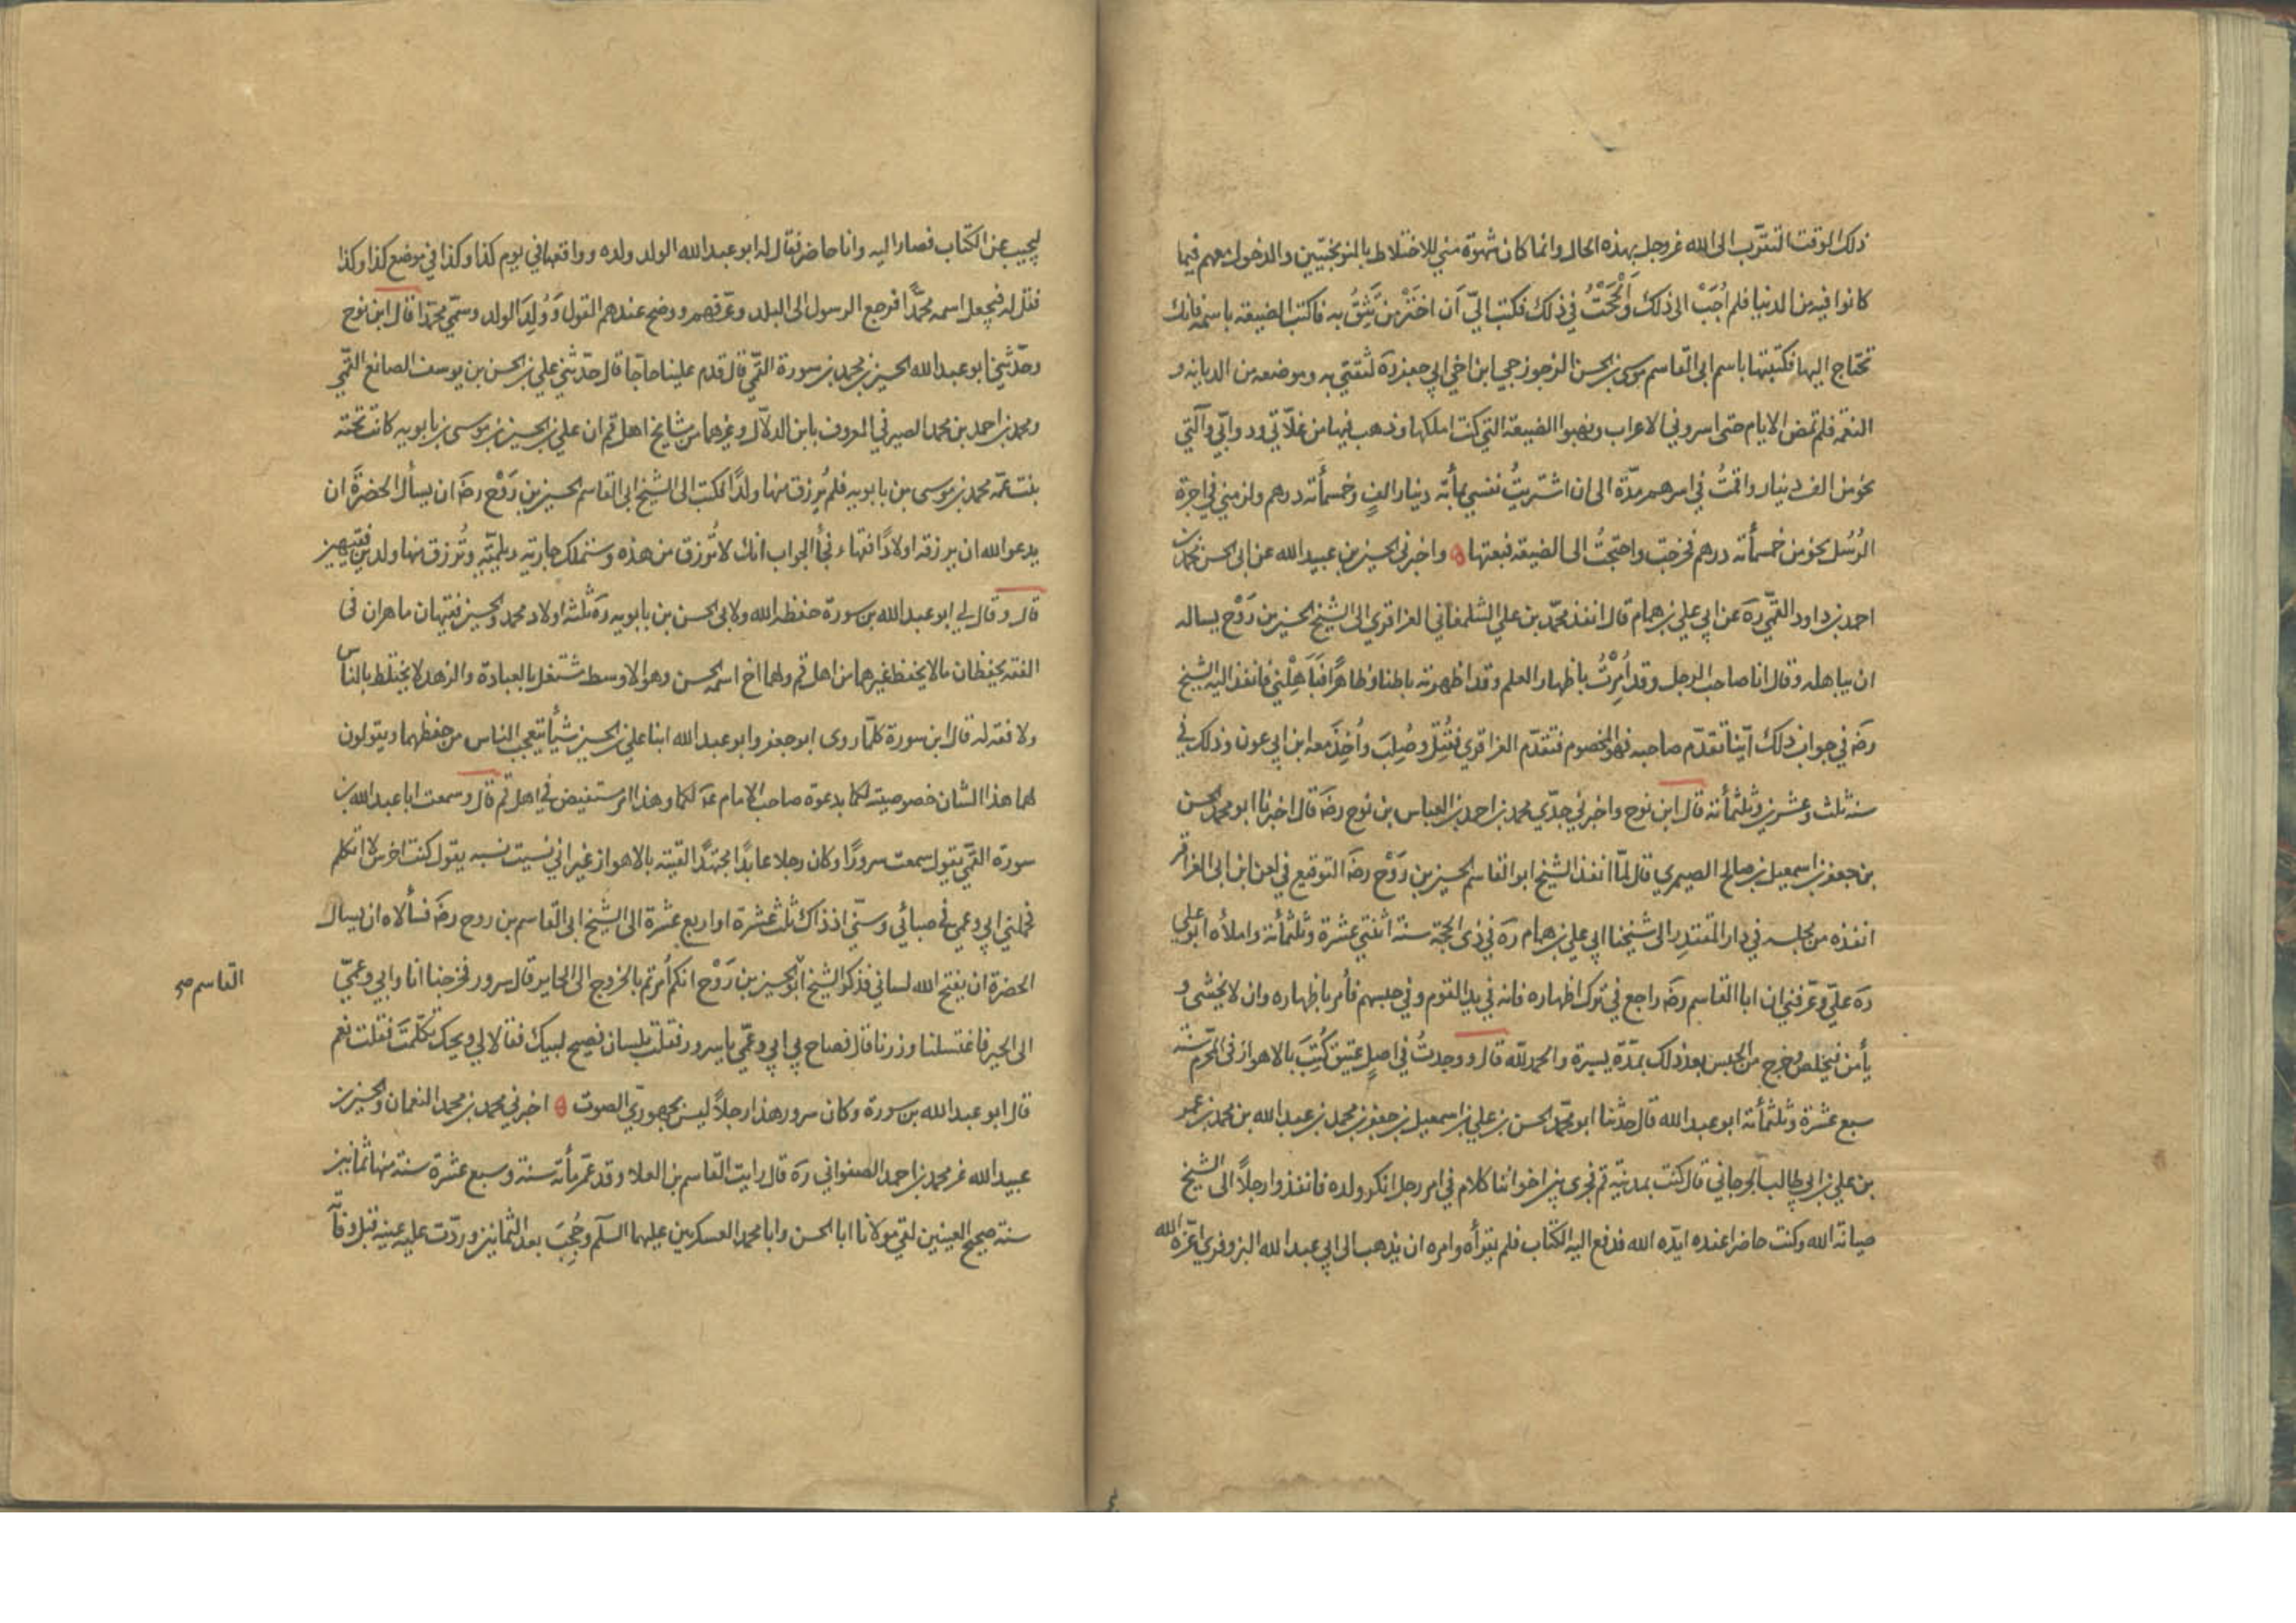 ذلك الوقت التقرّب الى الله عز وجل بهذه الحال وانما كان شهوة مني للاختلاط بالنوبختيّين والدخول معهم فيما
كانوا فيه من الدنيا فلم اُجَبْ الى ذلك وَاَلْحَحْتُ في ذلك فكتب اليّ اَن اختَرْ مَن تَثِقُ به فاكتب الضيعة باسمه فانك
تحتاج اليها فكتبتها باسم ابى القاسم موسى بن الحسن الزجوزجي ابن اخي ابي جعفر ره لثقتي به وموضعه من الديانة و
النعمة فلم تمض الايام حتى اسروني الاعراب ونهبوا الضيعة التي كنت املكها وذهب فيها من غلّاتي ودوابّي وآلتي
نحو من الف دينار واقمتُ في اسرهم مدّة الى ان اشتريتُ نفسي بمأته دينار والفٍ وخمسمأته درهم ولزمني في اجرة
الرُسُل نحو من خمسمأته درهم فخرجت واحتجتُ الى الضيعة فبعتها ۞ واخبرني الحسين بن عبيد الله عن ابى الحسن محمد بن
احمد بن داود القمّي ره عن ابي علي بن همام قال انفذ محمّد بن علي الشلمغاني العزاقري الى الشيخ الحسين بن رَوْح يساله
ان يباهله وقال انا صاحب الرجل وقد اُمِرْتُ باظهار العلم وقد اظهرته باطنا وظاهرًا فَبَاهِلْني فانفذ اليه الشيخ
رضه في جواب ذلك اَيّنا تقدّم صاحبه فهو المخصوم فتقدّم العزاقري فقُتِلَ وصُلِبَ واُخِذَ معه ابن ابي عون وذلك في
سنة ثلث وعشرين وثلثمأته قال ابن نوح واخبرني جدّي محمد بن احمد بن العباس بن نوح رضه قال اخبرنا ابو محمد الحسن
بن جعفر بن اسمعيل بن صالح الصيمري قال لمّا انفذ الشيخ ابو القاسم الحسين بن رَوْح رضه التوقيع في لعن ابن ابى العزاقر
انفذه من مجلسه في دار المقتدر الى شيخنا ابي علي بن همام ره في ذي الحجة سنة اثنتي عشرة وثلثمأته واملأه ابو علي
ره عليّ وعرّفني ان ابا القاسم رضه راجع في ترك اظهاره فانه في يد القوم وفي حبسهم فأمر باظهاره وان لا يخشى و
يأمن فتخلص وخرج من الحبس بعد ذلك بمدّة يسيرة والحمد لله قال ووجدتُ في اصلٍ عتيق كُتِبَ بالاهواز في المحرم سنة
سبع عشرة وثلثمأته ابو عبد الله قال حدثنا ابو محمّد الحسن بن علي بن اسمعيل بن جعفر بن محمد بن عبد الله بن محمد بن عمر
بن علي بن ابي طالب الجرجاني قال كنت بمدينة قم فجرى بين اخواننا كلام في امر رجل انكر ولده فانفذوا رجلاً الى الشيخ
صيانه الله وكنت حاضرا عنده ايّده الله فدفع اليه الكتاب فلم يقرأه وامره ان يذهب الى ابي عبد الله البزوفري اعزّه الله
ليجيب عن الكتاب فصار اليه وانا حاضر فقال له ابو عبد الله الولد ولده وواقعها في يوم كذا وكذا في موضع كذا وكذا
فقل له فيجعل اسمه محمّدًا فرجع الرسول الى البلد وعرّفهم ووضح عندهم القول وَوُلِدَ الولد وسمّي محمّدا قال ابن نوح
وحدّثني ابو عبد الله الحسين بن محمد بن سورة القمّي قال قدم علينا حاجّا قال حدّثني علي بن الحسن بن يوسف الصائغ القمّي
ومحمد بن احمد بن محمد الصيرفي المعروف بابن الدلّال وغيرهما من مشايخ اهل قم ان علي بن الحسين بن موسى بن بابويه كانت تحته
بنت عمّه محمد بن موسى بن بابويه فلم يُرزق منها ولدًا فكتب الى الشيخ ابى القاسم الحسين بن رَوْح رضه ان يسأل الحضرَة ان
يدعو الله ان يرزقه اولادًا فقهاء فجأ الجواب انك لا تُرزق من هذه وستملك جارية ديلميّة وتُرزق منها ولدين فقيهين
قال وقال لي ابو عبد الله بن سورة حفظه الله ولابى الحسن بن بابويه ره ثلثة اولاد محمد والحسين فقيهان ماهران في
الفقه يحفظان مالا يحفظ غيرهما من اهل قم ولهما اخ اسمه الحسن وهو الاوسط مشتغل بالعبادة والزهد لا يختلط بالناس
ولا فقه له قال ابن سورة كلّما روى ابو جعفر وابو عبد الله ابنا علي بن الحسين شيأ يتعجب الناس من حفظهما ويقولون
لهما هذا الشان خصوصية لكما بدعوة صاحب الامام عه لكما وهذا امر مستفيض في اهل قم قال وسمعت ابا عبد الله بن
سورة القمّي يقول سمعت سرورًا وكان رجلا عابدًا مجتهدًا لقيته بالاهواز غير اني نسيت نسبه يقول كنت اخرس لا اتكلم
فحملني ابي وعمي في صبائي وسنّي اذ ذاك ثلث عشرة او اربع عشرة الى الشيخ ابى القاسم بن روح رضه فسألاه ان يسال
الحضرة ان يفتح الله لساني فذكر الشيخ ابو الحسين بن رَوْح انكم اُمرتم بالخروج الى الحاير قال سرور فخرجنا انا وابي وعمّي
القاسم صح
الى الحير فاغتسلنا وزرنا قال فصاح بي ابي وعمّي يا سرور فقلت بلسان فصيح لبيك فقالا لي ويحك تكلمتَ فقلت نعم
قال ابو عبد الله بن سورة وكان سرور هذا رجلاً ليس بجهوريّ الصوت ۞ اخبرني محمد بن محمد النعمان والحسين بن
عبيد الله عن محمد بن احمد الصفواني ره قال رايت القاسم بن العلا وقد عمّر مأته سنة وسبع عشرة سنة منها ثمانين
سنة صحيح العينين لقي مولانا ابا الحسن وابا محمد العسكريين عليهما السلم وحُجِبَ بعد الثمانين وردّت عليه عينه قبل وفا